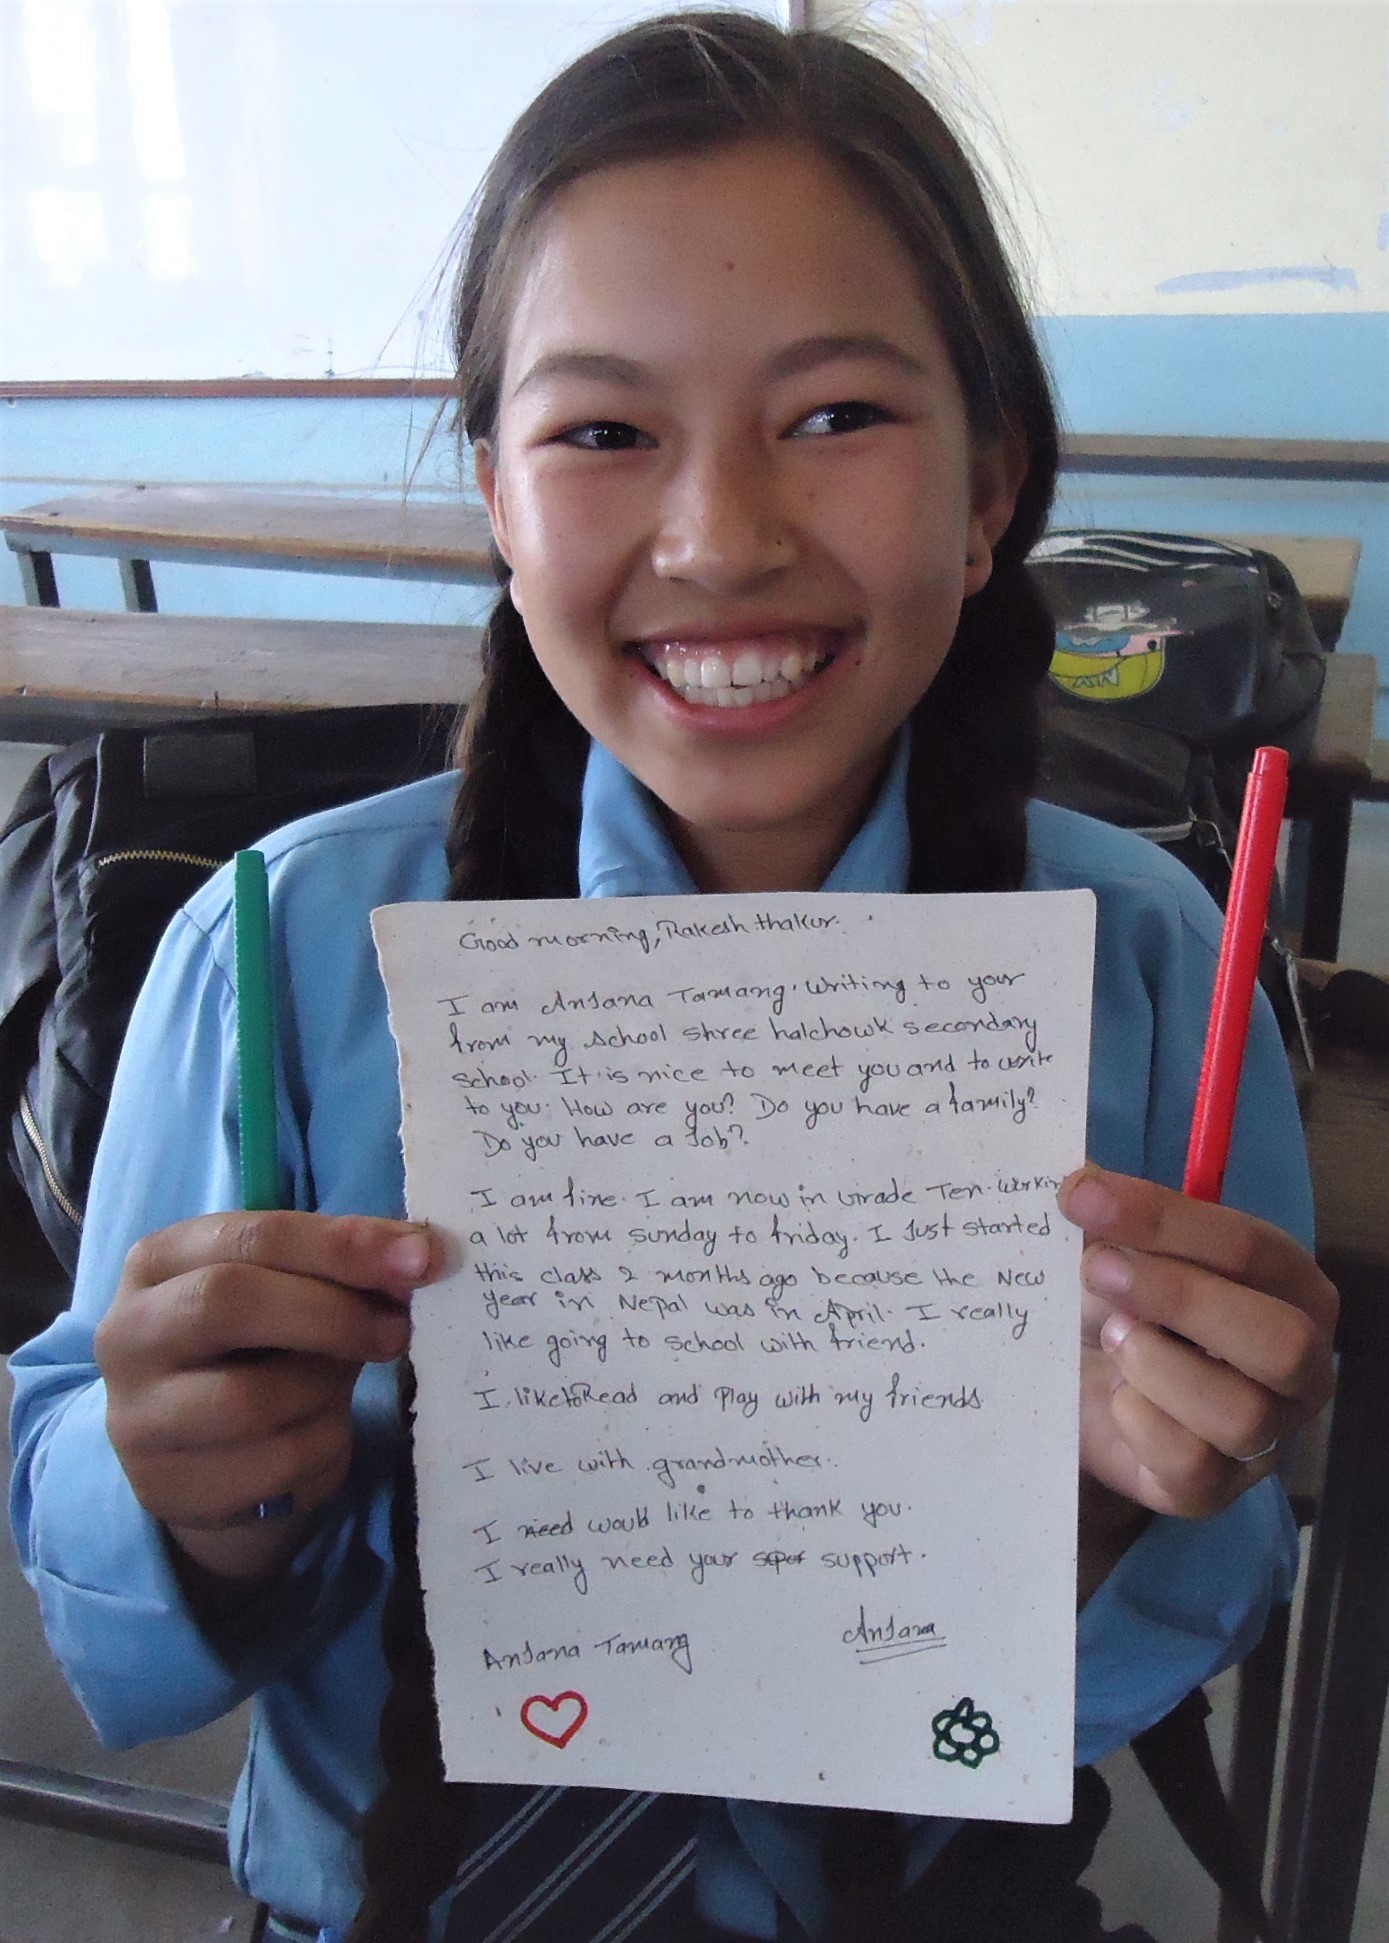 Good morning, Rakesh thakur.
I am Anjana Tamang. Writing to your
from my school shree halchowk secondary
school. It is nice to meet you and to write
to you. How are you? Do you have a family?
Do you have a Job?
I am fine. I am now in Grade Ten. Workin
a lot from sunday to friday. I Just started
this class 2 months ago because the New
year in Nepal was in April. I really
like going to school with friend.
I like to Read and play with my friends.
I live with grandmother.
I need would like to thank you.
I really need your support.
Anjana Tamang
Anjana